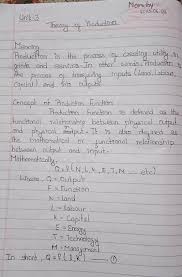 Monday
Unit-3
Theory of Production
Meaning
Production is the process of creating utility in
goods and services. In other words, Production is
the process of transforming inputs (Land, labour,
capital) and into outputs
Concept of Production Function
Production Function is defined as the
functional relationship between physical output
and physical output. It is also defined as
the mathematical or functional relationship
between output and input.
Mathematically,
Q = f(N, L, K, E, T, M ..... etc)
Where, Q = Output
F = Function
N = Land
L = Labour
K = Capital
E = Energy
T = Technology
M = Management
In short, Q = f(L, K)